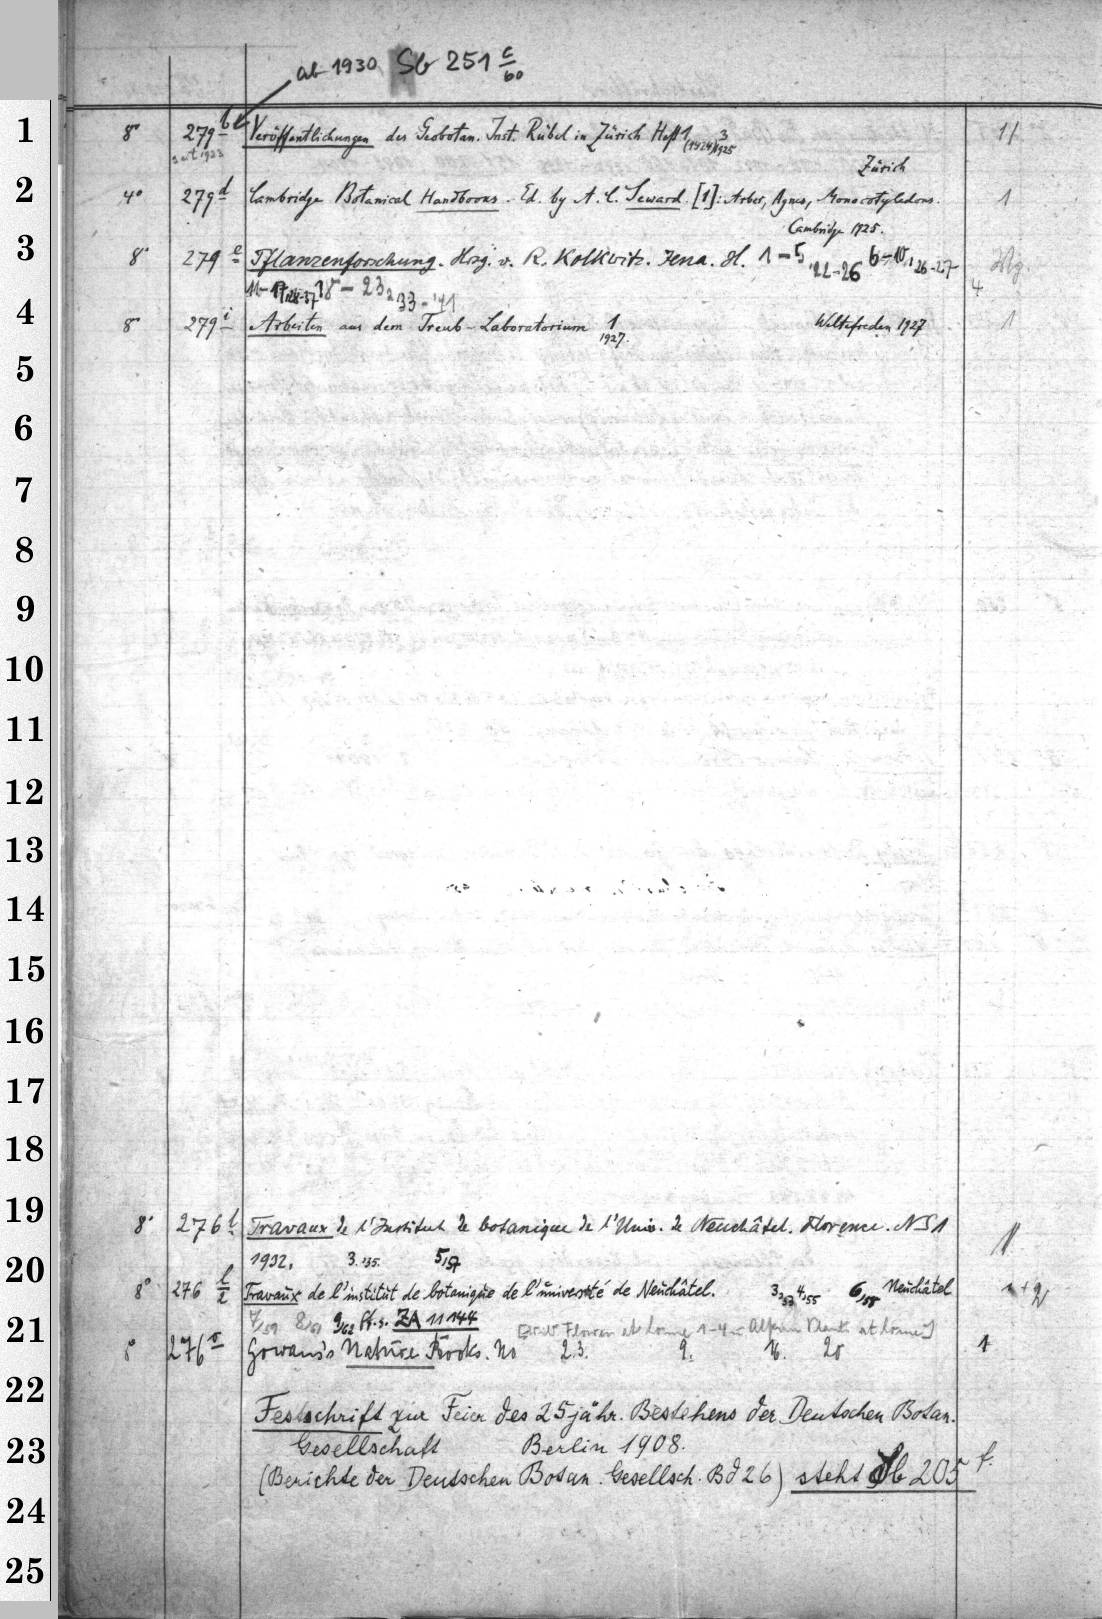 ab 1930 Sb 251 c/60
8° 279 b Veröffentlichungen des Geobotan. Inst. Rübel in Zürich Heft 1 (1924) 3 1925 11
seit 1923 Zürich
4° 279 d Cambridge Botanical Handbooks. Ed. by A. C. Seward. [1]: Arber, Agnes, Monocotyledons. 1
Cambridge 1925.
8° 279 e Pflanzenforschung. Hrsg. v. R. Kolkwitz. Jena. H. 1-5, '22-26 6-10, '26-27
18-23, 33-'41 4
8° 279 i Arbeiten aus dem Treub-Laboratorium 1 1927. Weltefreden 1927 1
8° 276 l Travaux de l'Institut de botanique de l'Univ. de Neuchâtel. Florence. NS 1
1932, 3.'35. 5,57
8° 276 l/2 Travaux de l'institut de botanique de l'université de Neuchâtel. 3,53 4,55 6,58 Neuchâtel
7/59 8/61 9/62 Ff. s. ZA 11144 Flowers at home 1-4 Alpine Plants at home]
8° 276 o Gowans's Nature Books. No 2.3. 9. 16. 20 1
Festschrift zur Feier des 25jähr. Bestehens der Deutschen Botan.
Gesellschaft Berlin 1908.
(Berichte der Deutschen Botan. Gesellsch. Bd 26) steht Sb 205 f.
1
2
3
4
5
6
7
8
9
10
11
12
13
14
15
16
17
18
19
20
21
22
23
24
25